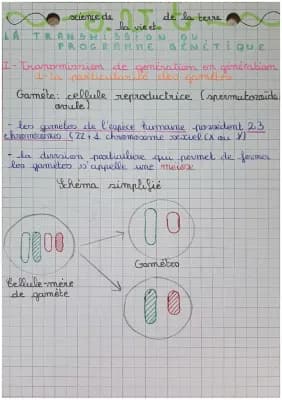 S.V.T
science de la vie et de la terre
LA TRANSMISSION DU
PROGRAMME GÉNÉTIQUE
I - Transmission de génération en génération
1 - la particularité des gamètes
Gamète: cellule reproductrice (spermatozoïde
ovule)
- les gamètes de l'espèce humaine possèdent 23
chromosomes (22 + 1 chromosome sexuel (X ou Y)
- la division particulière qui permet de former
les gamètes s'appelle une méiose
Schéma simplifié
Gamètes
Cellule-mère
de gamète